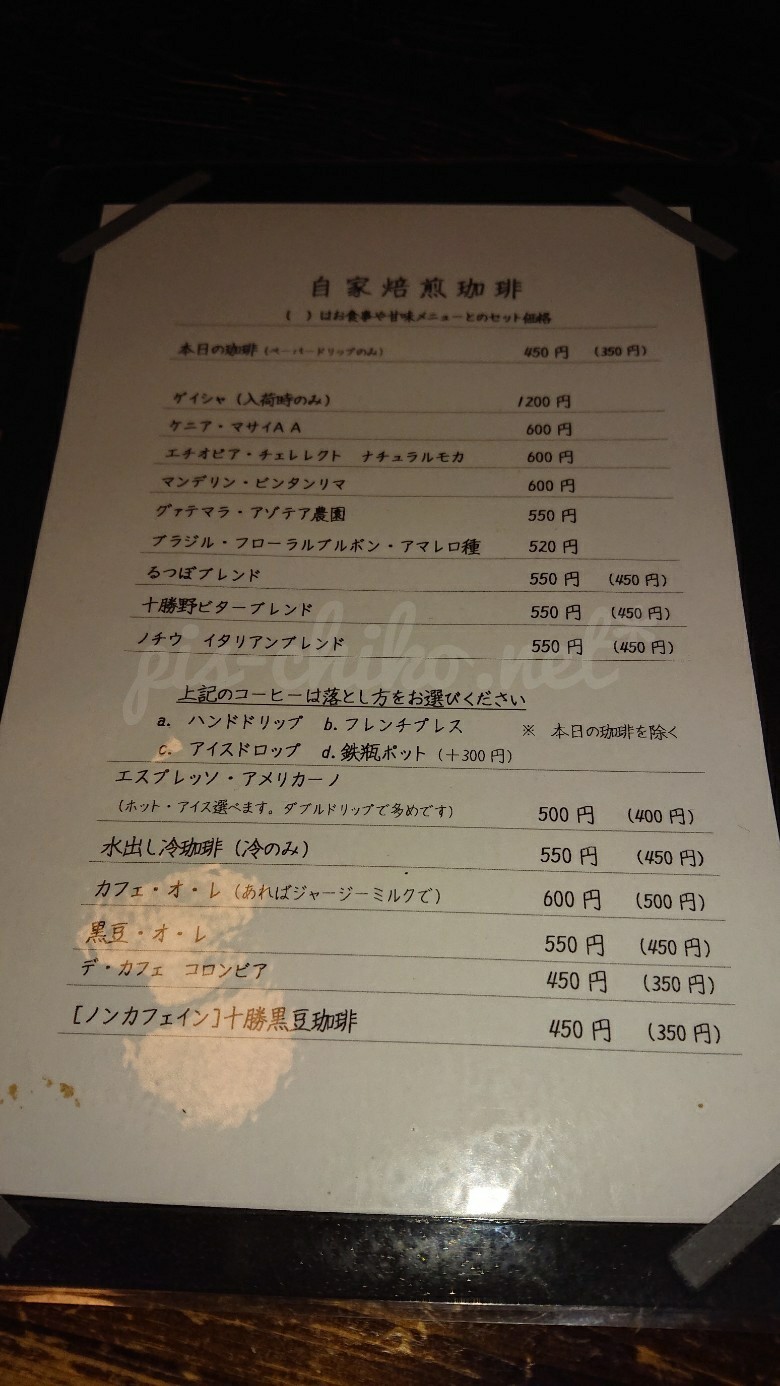 自家焙煎珈琲
( )はお食事や甘味メニューとのセット価格
本日の珈琲(ペーパードリップのみ) 450円 (350円)
ゲイシャ(入荷時のみ) 1200円
ケニア・マサイAA 600円
エチオピア・チェレレクト ナチュラルモカ 600円
マンデリン・ビンタンリマ 600円
グァテマラ・アゾテア農園 550円
ブラジル・フローラルブルボン・アマレロ種 520円
るつぼブレンド 550円 (450円)
十勝野ビターブレンド 550円 (450円)
ノチウ イタリアンブレンド 550円 (450円)
pis-chiko.net
上記のコーヒーは落とし方をお選びください
a. ハンドドリップ b. フレンチプレス ※ 本日の珈琲を除く
c. アイスドロップ d. 鉄瓶ポット(+300円)
エスプレッソ・アメリカーノ
(ホット・アイス選べます。ダブルドリップで多めです) 500円 (400円)
水出し冷珈琲(冷のみ) 550円 (450円)
カフェ・オ・レ(あればジャージーミルクで) 600円 (500円)
黒豆・オ・レ 550円 (450円)
デ・カフェ コロンビア 450円 (350円)
[ノンカフェイン]十勝黒豆珈琲 450円 (350円)